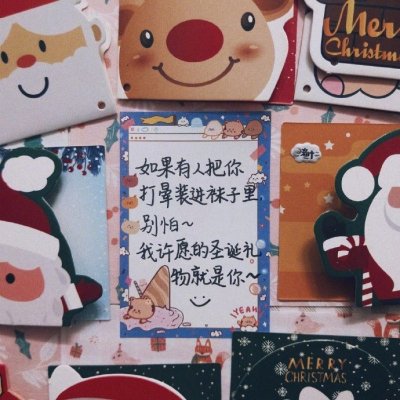 Merry
Christmas
如果有人把你
打晕装进袜子里
别怕~
我许愿的圣诞礼
物就是你~
YEAH
MERRY
CHRISTMAS